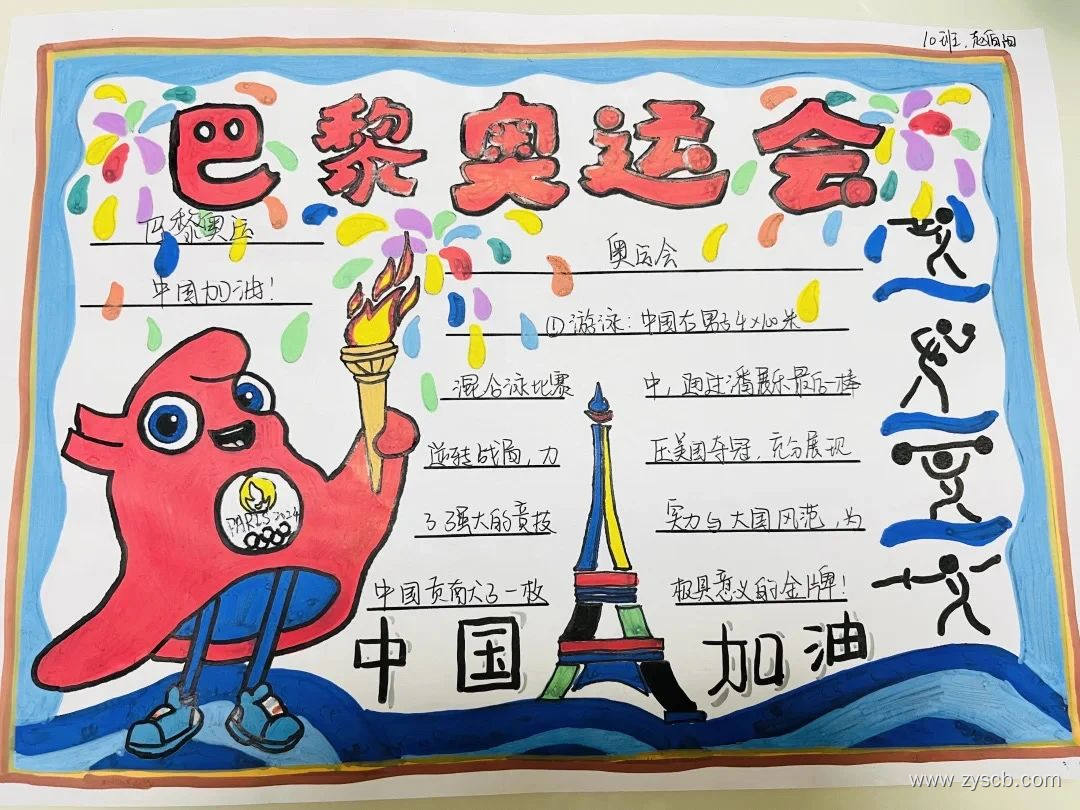 10班.
巴黎奥运会
巴黎奥运
中国加油!
奥运会
①游泳:中国在男子4×100米
混合泳比赛 中,通过潘展乐最后一棒
逆转战局,力 压美国夺冠,充分展现
了强大的竞技 实力与大国风范,为
中国贡献了一枚 极具意义的金牌!
PARIS 2024
中国加油
www.zyscb.com